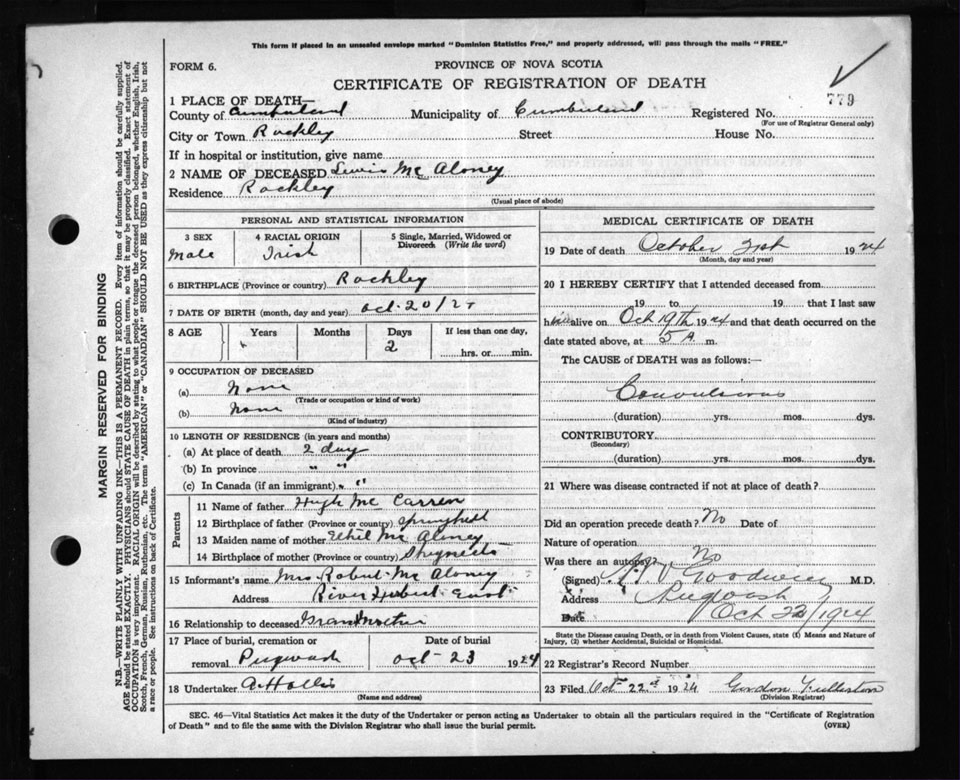 This form if placed in an unsealed envelope marked "Dominion Statistics Free," and properly addressed, will pass through the mails "FREE."
FORM 6.
PROVINCE OF NOVA SCOTIA
CERTIFICATE OF REGISTRATION OF DEATH
779
1 PLACE OF DEATH—
County of Cumberland Municipality of Cumberland Registered No.
(For use of Registrar General only)
City or Town Rockley Street House No.
If in hospital or institution, give name
2 NAME OF DECEASED Lewis Mc Aloney
Residence Rockley
(Usual place of abode)
PERSONAL AND STATISTICAL INFORMATION
3 SEX 4 RACIAL ORIGIN 5 Single, Married, Widowed or Divorced (Write the word)
Male Irish
6 BIRTHPLACE (Province or country) Rockley
7 DATE OF BIRTH (month, day and year) Oct 20/2
8 AGE Years Months Days If less than one day,
2 hrs. or min.
9 OCCUPATION OF DECEASED
(a) None
(Trade or occupation or kind of work)
(b) None
(Kind of industry)
10 LENGTH OF RESIDENCE (in years and months)
(a) At place of death 2 day
(b) In province " "
(c) In Canada (if an immigrant) " "
Parents
11 Name of father Hugh Mc Carren
12 Birthplace of father (Province or country) Springhill
13 Maiden name of mother Ethel Mc Aloney
14 Birthplace of mother (Province or country)
15 Informant's name Mrs Robert Mc Aloney
Address River Hebert East
16 Relationship to deceased Grandmother
17 Place of burial, cremation or removal Pugwash Date of burial Oct 23 1924
18 Undertaker A Hollis
(Name and address)
MEDICAL CERTIFICATE OF DEATH
19 Date of death October 21st 1924
(Month, day and year)
20 I HEREBY CERTIFY that I attended deceased from
19 to 19 that I last saw
him alive on Oct 19th 1924 and that death occurred on the
date stated above, at 5 A. m.
The CAUSE of DEATH was as follows:—
Convulsions
(duration) yrs. mos. dys.
CONTRIBUTORY
(Secondary)
(duration) yrs. mos. dys.
21 Where was disease contracted if not at place of death?
Did an operation precede death? No Date of
Nature of operation
Was there an autopsy? No
(Signed) Goodwin M.D.
Address Pugwash
Date Oct 22/1924
State the Disease causing Death, or in death from Violent Causes, state (1) Means and Nature of Injury, (2) whether Accidental, Suicidal or Homicidal.
22 Registrar's Record Number
23 Filed Oct 22nd 1924 Gordon Fullerton
(Division Registrar)
SEC. 46—Vital Statistics Act makes it the duty of the Undertaker or person acting as Undertaker to obtain all the particulars required in the "Certificate of Registration
of Death" and to file the same with the Division Registrar who shall issue the burial permit. (OVER)
MARGIN RESERVED FOR BINDING
N.B.—WRITE PLAINLY WITH UNFADING INK—THIS IS A PERMANENT RECORD. Every item of information should be carefully supplied.
AGE should be stated EXACTLY. PHYSICIANS should STATE CAUSE OF DEATH in plain terms, so that it may be properly classified. Exact statement of
OCCUPATION is very important. RACIAL ORIGIN will be described by stating to what people or tongue the deceased person belonged, whether English, Irish,
Scotch, French, German, Russian, Ruthenian, etc. The terms "AMERICAN" or "CANADIAN" SHOULD NOT BE USED as they express citizenship but not
a race or people. See instructions on back of Certificate.